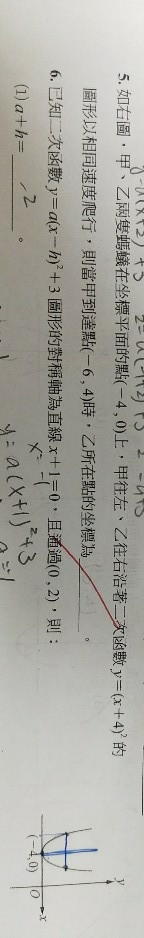 5. 如右圖，甲、乙兩隻螞蟻在坐標平面的點(-4, 0)上，甲往左、乙往右沿著二次函數 y=(x+4)² 的
圖形以相同速度爬行，則當甲到達點(-6, 4)時，乙所在點的坐標為＿＿＿＿。
6. 已知二次函數 y=a(x-h)²+3 圖形的對稱軸為直線 x+1=0，且通過(0, 2)，則：
x=-1
(1) a+h= -2 。
y=a(x+1)²+3
a=-1
y
(-4,0)
O
x